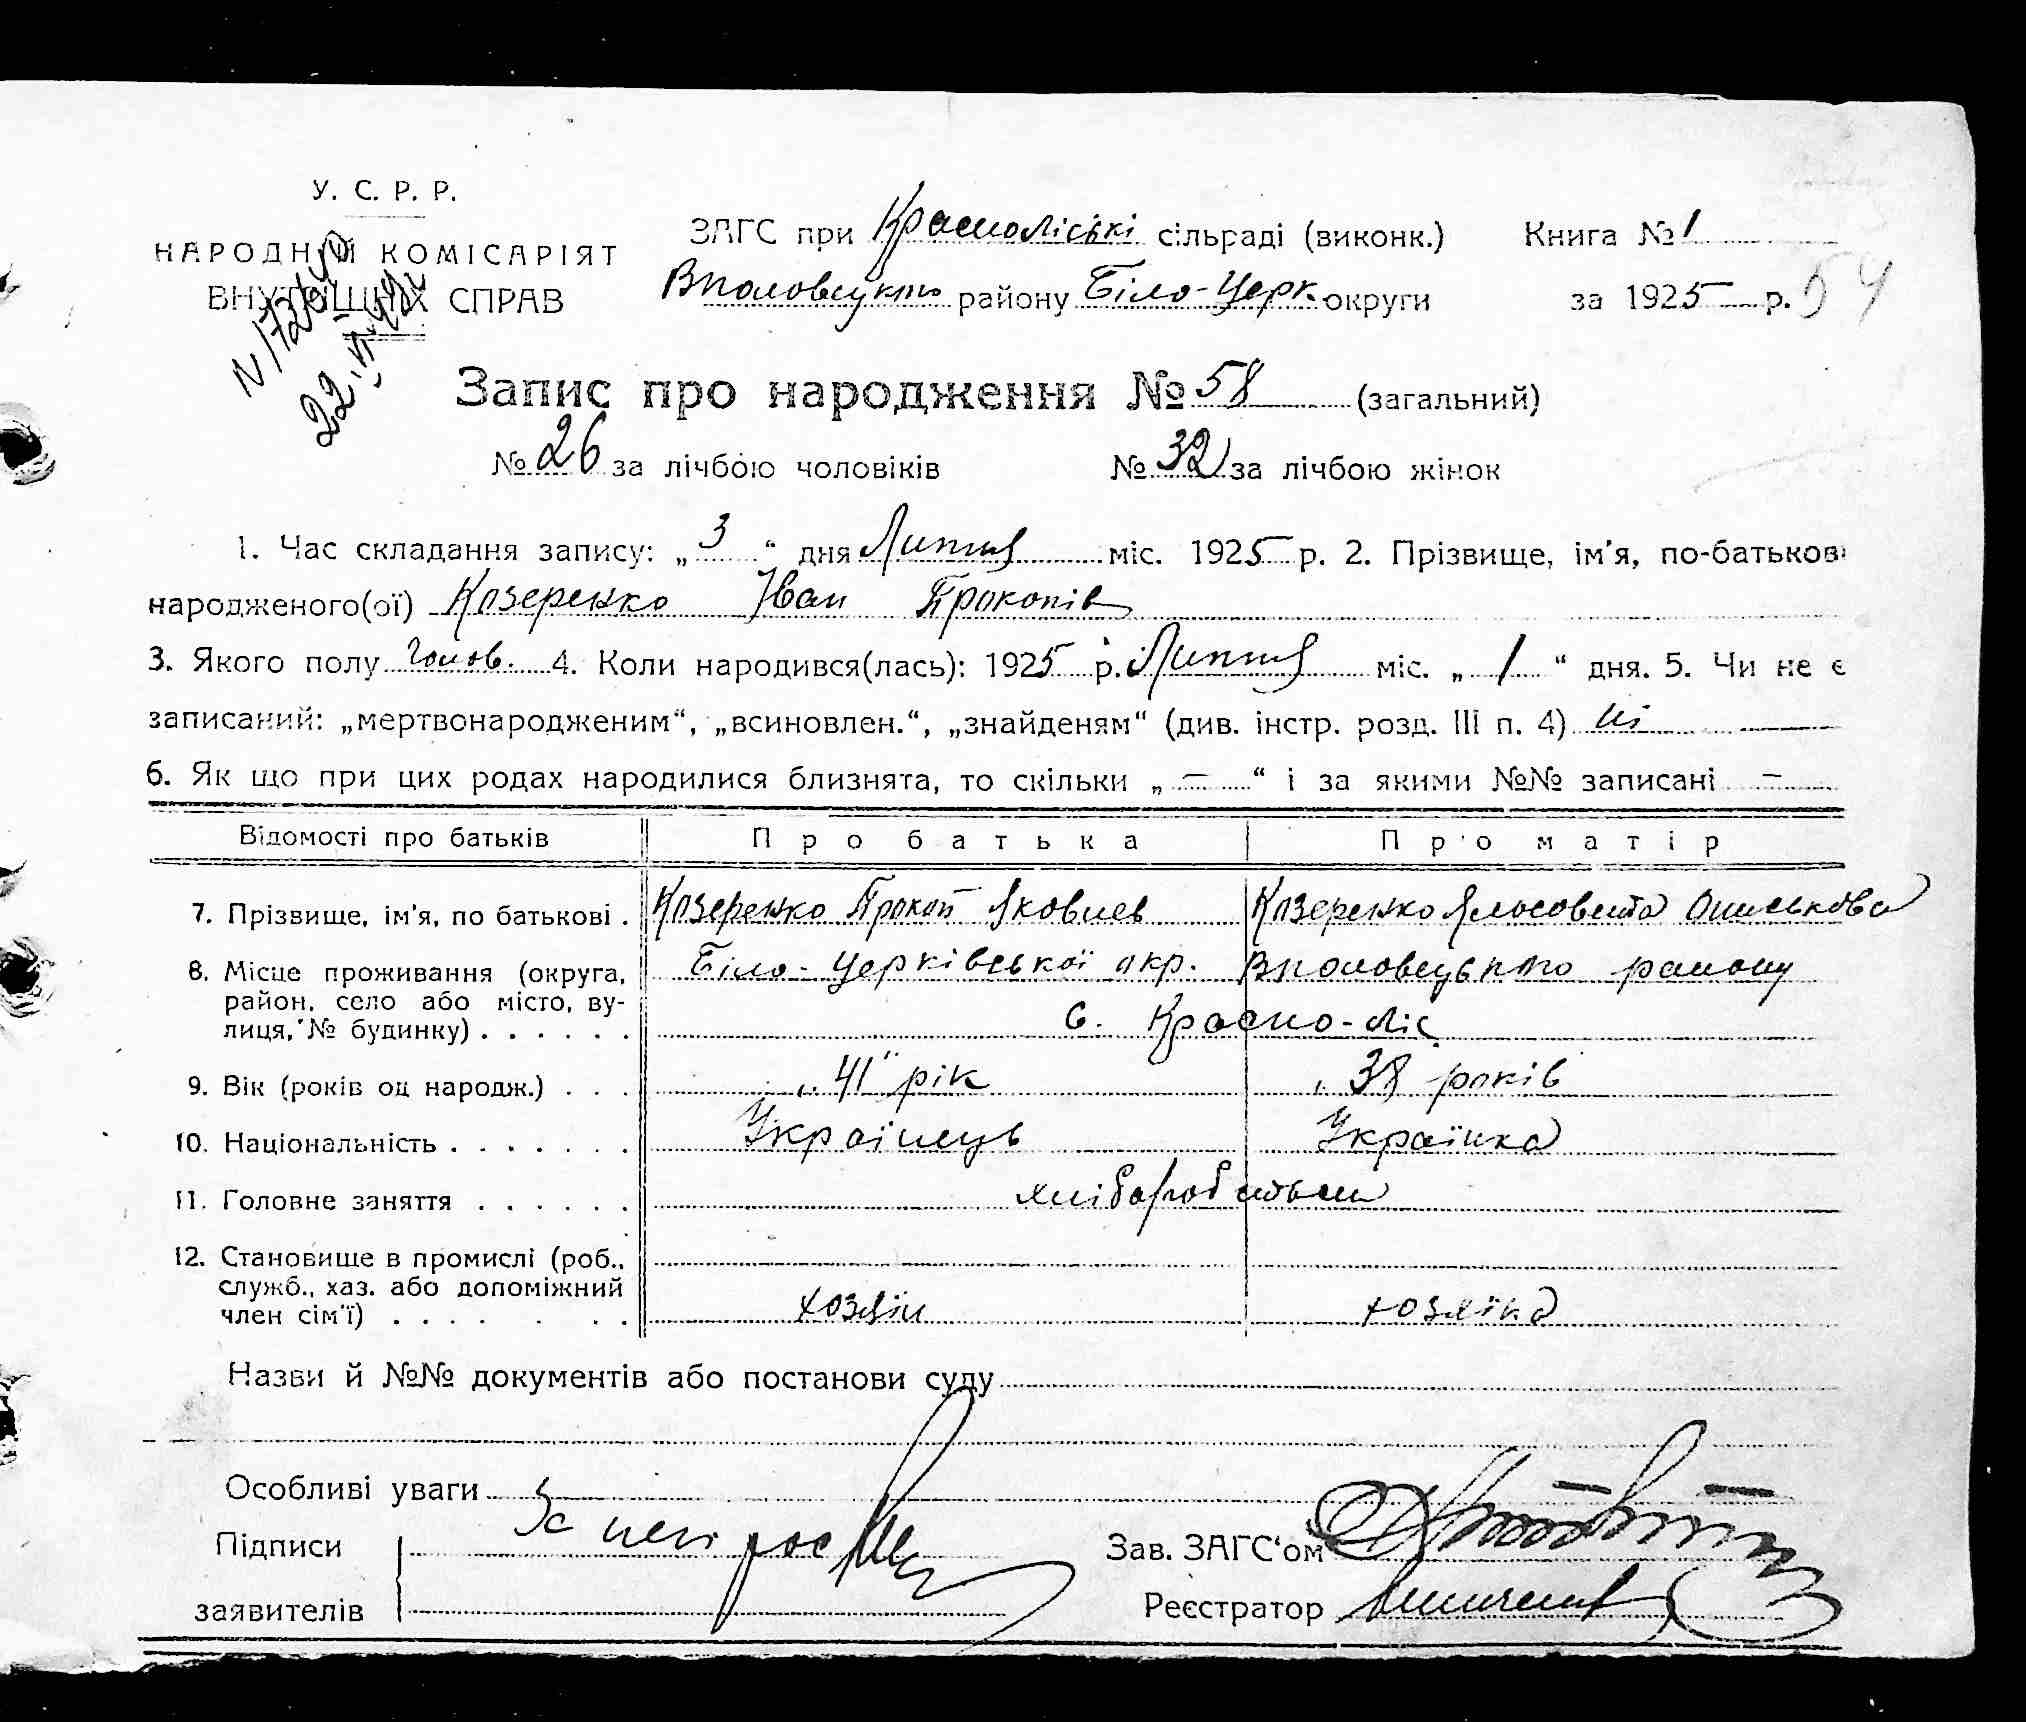 У. С. Р. Р.
НАРОДНІЙ КОМІСАРІЯТ
ВНУТРІШНІХ СПРАВ
ЗАГС при Красноліські сільраді (виконк.) Книга № 1
району Біло-Церк. округи за 1925 р. 54
Запис про народження № 58 (загальний)
№ 26 за лічбою чоловіків № 32 за лічбою жінок
1. Час складання запису: „3“ дня Липня міс. 1925 р. 2. Прізвище, ім'я, по-батькові
народженого(ої) Козеренко Іван Прокопів
3. Якого полу чолов. 4. Коли народився(лась): 1925 р. Липня міс. „1“ дня. 5. Чи не є
записаний: „мертвонародженим“, „всиновлен.“, „знайденям“ (див. інстр. розд. III п. 4) ні
6. Як що при цих родах народилися близнята, то скільки „—“ і за якими №№ записані —
Відомості про батьків Про батька Про матір
7. Прізвище, ім'я, по батькові . Козеренко Прокоп Яковлев Козеренко
8. Місце проживання (округа, Біло-Церківської окр. району
район, село або місто, ву- с. Красно-Ліс
лиця, № будинку) . . . . . .
9. Вік (років од народж.) . . . „41" рік „38 років
10. Національність . . . . . . . Українець Українка
11. Головне заняття . . . . . .
12. Становище в промислі (роб.,
служб., хаз. або допоміжний хозяїн хозяїка
член сім'ї) . . . . . . .
Назви й №№ документів або постанови суду
Особливі уваги
Підписи За Зав. ЗАГС'ом
заявителів Реєстратор